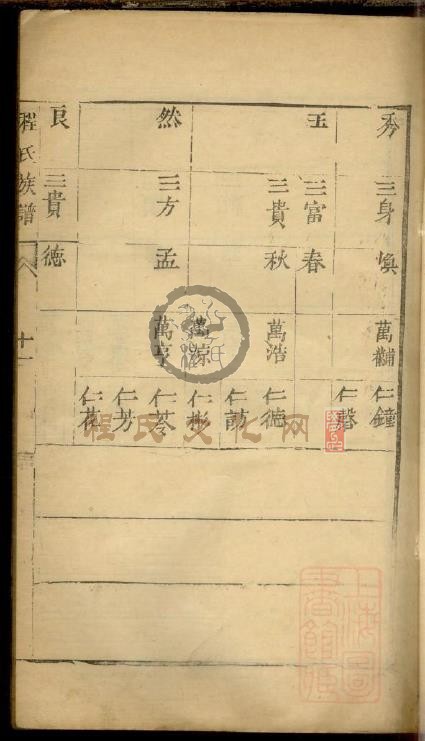 秀
三身 煥
萬黼
仁鐘
仁馨
玉
三富 春
三貴 秋
萬浩
仁德
仁彬
然
三方 孟
萬亨
仁苓
仁芳
仁花
良
三貴 德
程氏族譜
十一
程氏文化网
上海圖書館